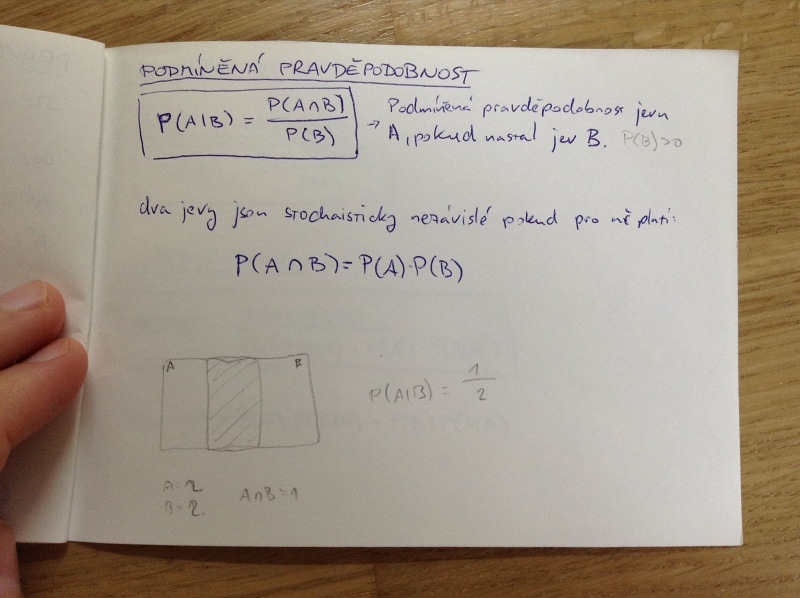 PODMÍNĚNÁ PRAVDĚPODOBNOST
P(A|B) = P(A∩B) / P(B) → Podmíněná pravděpodobnost jevu
A, pokud nastal jev B. P(B)>0
dva jevy jsou stochaisticky nezávislé pokud pro ně platí:
P(A∩B)=P(A)·P(B)
A B
P(A|B) = 1 / 2
A=2
B=2. A∩B=1